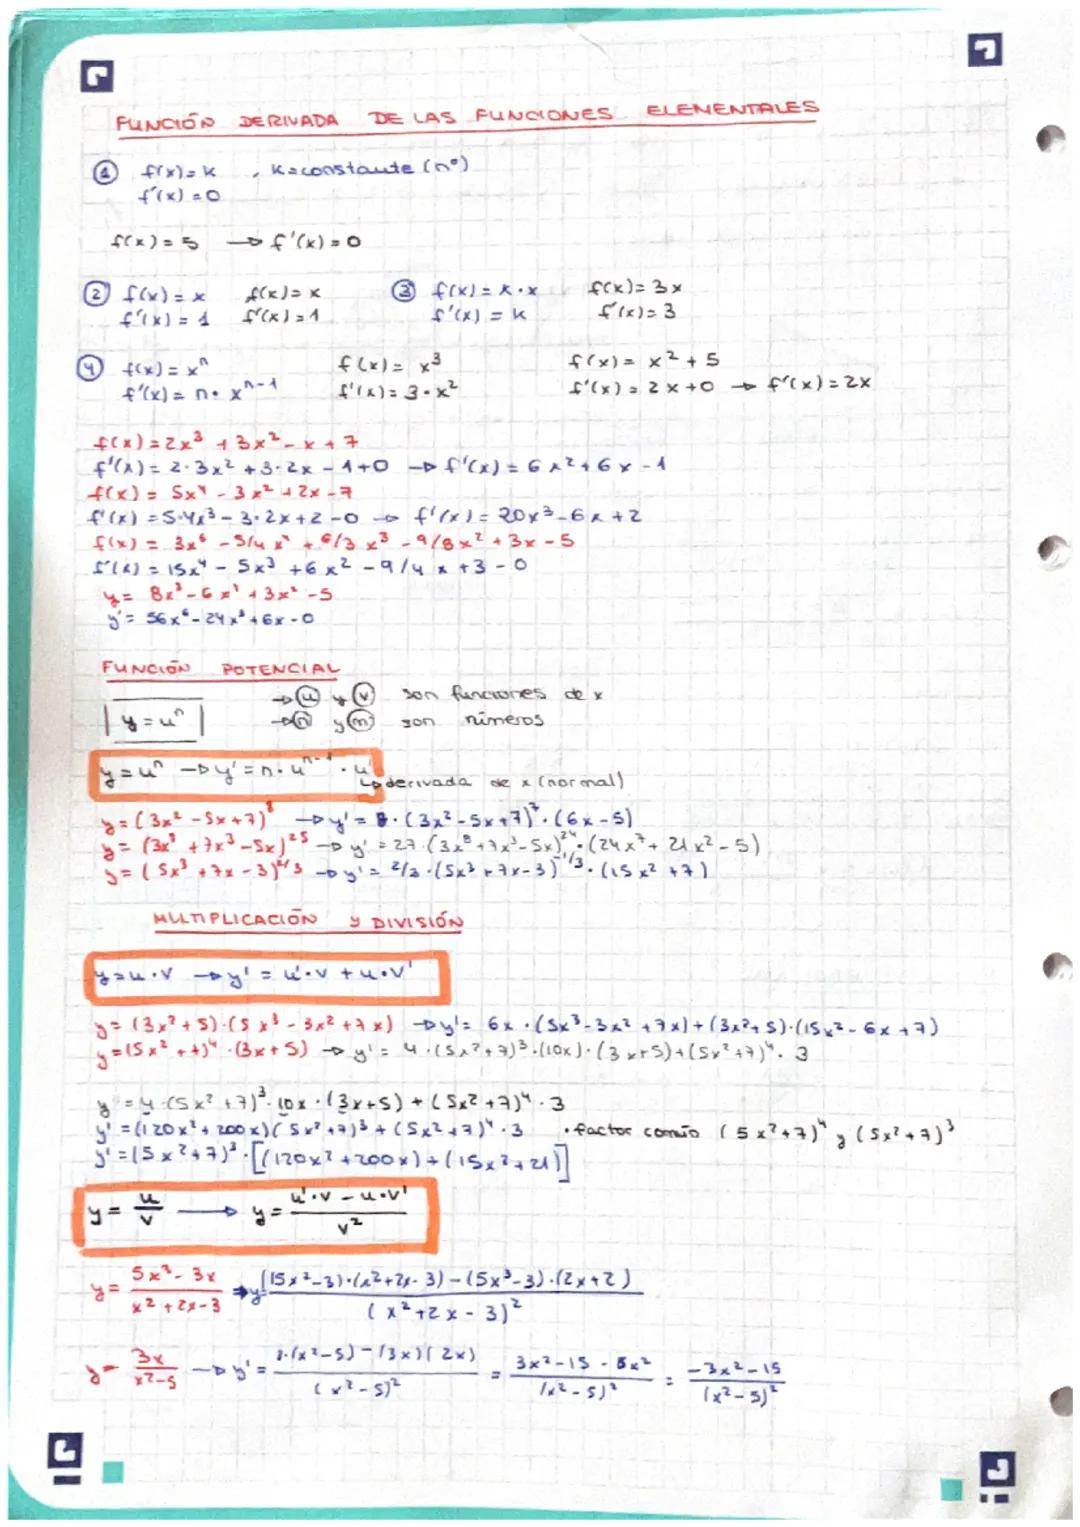 FUNCIÓN DERIVADA DE LAS FUNCIONES ELEMENTALES
① f(x)= k , k=constante (nº)
f'(x) = 0
f(x) = 5 → f'(x) = 0
② f(x) = x f(x) = x ③ f(x) = k·x f(x)= 3x
f'(x) = 1 f'(x) = 1 f'(x) = k f'(x)= 3
④ f(x) = xⁿ f(x) = x³ f(x) = x² + 5
f'(x) = n· xⁿ⁻¹ f'(x) = 3·x² f'(x) = 2x+0 → f'(x) = 2x
f(x) = 2x³ + 3x² - x + 7
f'(x) = 2·3x² + 3·2x - 1+0 → f'(x) = 6x²+6x -1
f(x) = 5x⁴ - 3x² + 2x - 7
f'(x) = 5·4x³ - 3·2x + 2 - 0 → f'(x) = 20x³ - 6x + 2
f(x) = 3x⁵ - 5/4 x⁴ + 6/3 x³ - 9/8x² + 3x - 5
f'(x) = 15x⁴ - 5x³ + 6x² - 9/4 x + 3 - 0
y' = 56x⁶ - 24x³ + 6x - 0
FUNCIÓN POTENCIAL
→ u y v son funciones de x
y = uⁿ → n y m son números
y = uⁿ → y' = n·uⁿ⁻¹·u'
↳ derivada de x (normal)
y = (3x² - 5x + 7)⁸ → y' = 8·(3x² - 5x + 7)⁷·(6x - 5)
y = (3x⁸ + 7x³ - 5x)²⁵ → y' = 27·(3x⁸ + 7x³ - 5x)²⁴·(24x⁷ + 21x² - 5)
y = (5x³ + 7x - 3)²/³ → y' = 2/3·(5x³ + 7x - 3)⁻¹/³·(15x² + 7)
MULTIPLICACIÓN Y DIVISIÓN
y = u·v → y' = u'·v + u·v'
y = (3x² + 5)·(5x³ - 3x² + 7x) → y' = 6x·(5x³ - 3x² + 7x) + (3x² + 5)·(15x² - 6x + 7)
y = (5x² + 7)⁴·(3x + 5) → y' = 4·(5x² + 7)³·(10x)·(3x + 5) + (5x² + 7)⁴·3
y' = 4·(5x² + 7)³·10x·(3x+5) + (5x² + 7)⁴·3
y' = (120x² + 200x)(5x² + 7)³ + (5x² + 7)⁴·3 · factor común (5x²+7)⁴ y (5x²+7)³
y' = (5x² + 7)³·[(120x² + 200x) + (15x² + 21)]
y = u/v → y = (u'·v - u·v')/v²
y = (5x³ - 3x)/(x² + 2x - 3) → y' = ((15x² - 3)·(x² + 2x - 3) - (5x³ - 3)·(2x + 2))/(x² + 2x - 3)²
y = 3x/(x² - 5) → y' = (3·(x² - 5) - (3x)(2x))/(x² - 5)² = (3x² - 15 - 6x²)/(x² - 5)² = (-3x² - 15)/(x² - 5)²